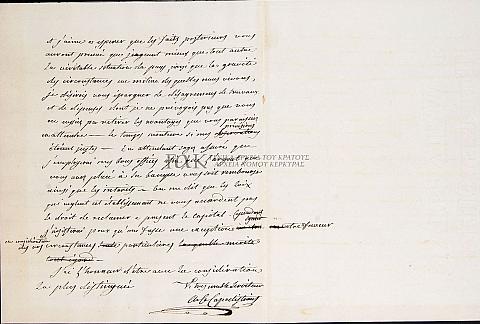 et j'aime à espérer que les faits postérieurs vous
auront prouvé que jugeant mieux que tout autre
la véritable situation du pays, ainsi que la gravité
des circonstances au milieu des quelles nous vivons,
je désirois vous épargner de désagrémens de travaux
et de dépenses dont je ne prévoyois pas que vous
en retirer les avantages que vous paraissiez
prévisions
en attendre — le temps montrera si mes
étaient justes — En attendant soyez assuré que
j'employerai mes bons offices afin que
vous avez placé à la banque vous soit remboursé
ainsi que les intérêts — On me dit que les loix
qui régissent cet établissement ne vous accordent pas
le droit de réclamer à présent le capital
j'insisterai pour qu'on fasse une exception en votre faveur
en considération
des vos circonstances particulières
J'ai l'honneur d'être avec la considération
la plus distinguée
V. très humble Serviteur
ΤΟΥ ΚΡΑΤΟΥΣ
ΑΡΧΕΙΑ ΝΟΜΟΥ ΚΕΡΚΥΡΑΣ